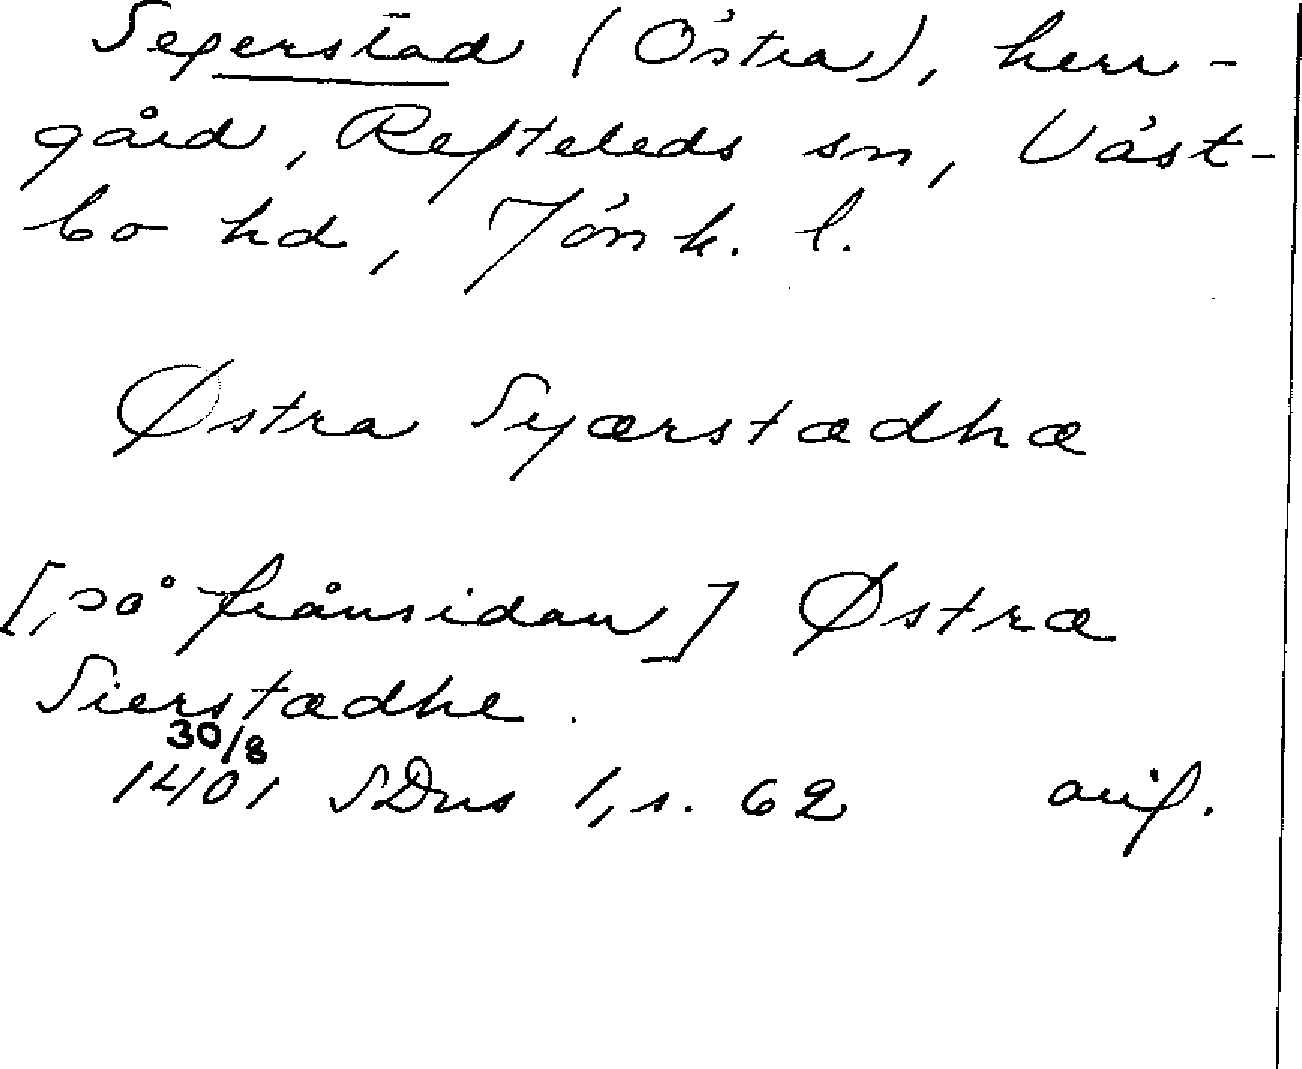 Segerstad (Östra), herr-
gård, Refteleds sn, Väst-
bo hd, Jönk. l.
Østra Syærstædhæ
[på frånsidan] Østræ
Sierstædhe.
30/8
1401 SDns 1, s. 62 avif.